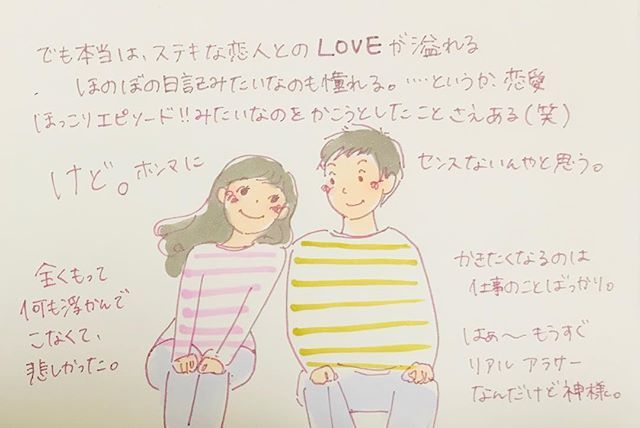 でも本当は、ステキな恋人とのLOVEが溢れる
ほのぼの日記みたいなのも憧れる。……というか、恋愛
ほっこりエピソード!!みたいなのをかこうとしたことさえある(笑)
けど。ホンマに
センスないんやと思う。
全くもって
何も浮かんで
こなくて、
悲しかった。
かきたくなるのは
仕事のことばっかり。
はぁ〜もうすぐ
リアルアラサー
なんだけど神様。